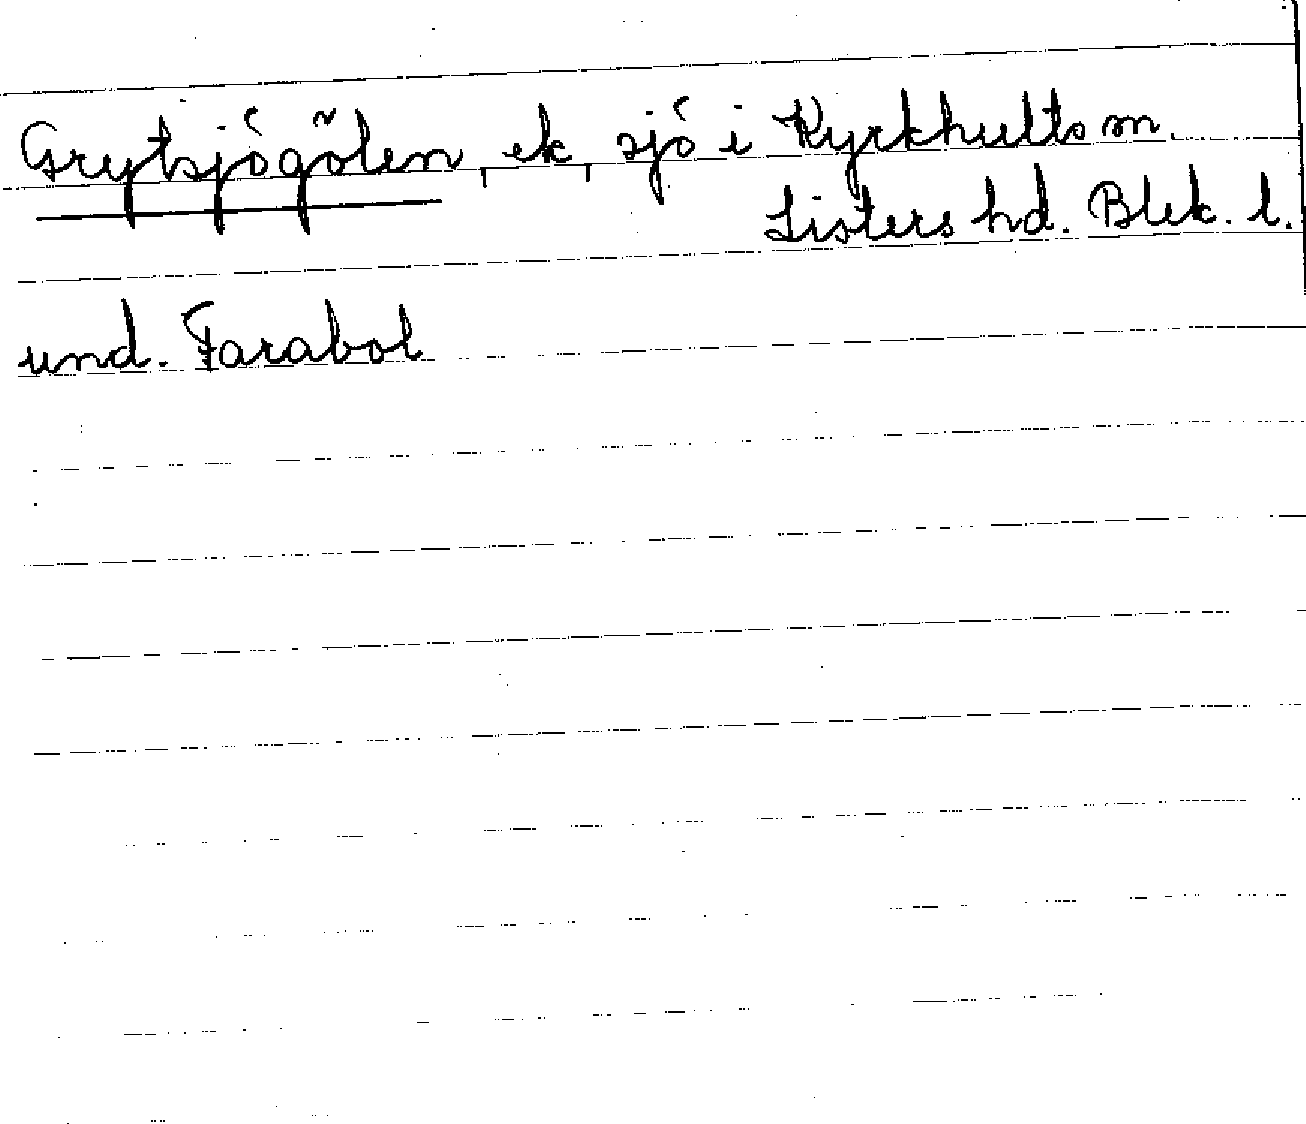 Grytsjögölen ek sjö i Kyrkhults sn.
Listers hd. Blek. l.
und. Farabol